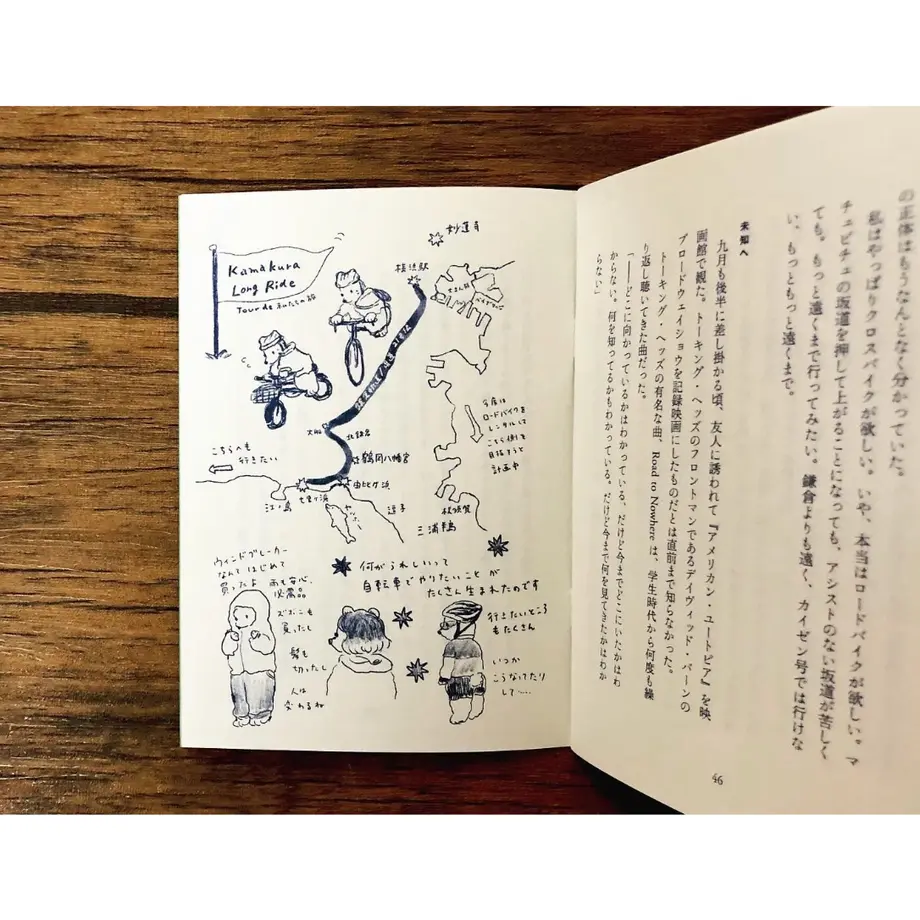 の正体はもうなんとなく分かっていた。
私はやっぱりクロスバイクが欲しい。いや、本当はロードバイクが欲しい。マ
チュピチュの坂道を押して上がることになっても、アシストのない坂道が苦しく
ても、もっと遠くまで行ってみたい。鎌倉よりも遠く、カイゼン号では行けな
い、もっともっと遠くまで。
未知へ
九月も後半に差し掛かる頃、友人に誘われて『アメリカン・ユートピア』を映
画館で観た。トーキング・ヘッズのフロントマンであるデイヴィッド・バーンの
ブロードウェイショウを記録映画にしたものだとは直前まで知らなかった。
トーキング・ヘッズの有名な曲、Road to Nowhere は、学生時代から何度も繰
り返し聴いてきた曲だった。
「――どこに向かっているかはわかっている、だけど今までどこにいたかはわ
からない。何を知ってるかもわかっている。だけど今まで何を見てきたかはわか
らない」
46
Kamakura
Long Ride
Tour de わたしの船
妙蓮寺
横浜駅
大船
北鎌倉
鶴岡八幡宮
由比ヶ浜
七里ヶ浜
江ノ島
逗子
横須賀
三浦半島
こちらへも
行きたい
今度は
ロードバイクを
レンタルして
こちら側を
目指そうと
計画中
何がうれしいって
自転車でやりたいことが
たくさん生まれたのです
ウィンドブレーカー
なんてはじめて
買ったよ 雨も安心、
必需品。
ズボンも
買ったし
髪も
切ったし
人は
変わるね
行きたいところ
もたくさん
いつか
こうなってたり
して……